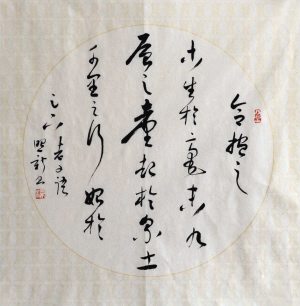 合抱之
木生於毫末九
層之臺起於累土
千里之行始於
足下 老子語